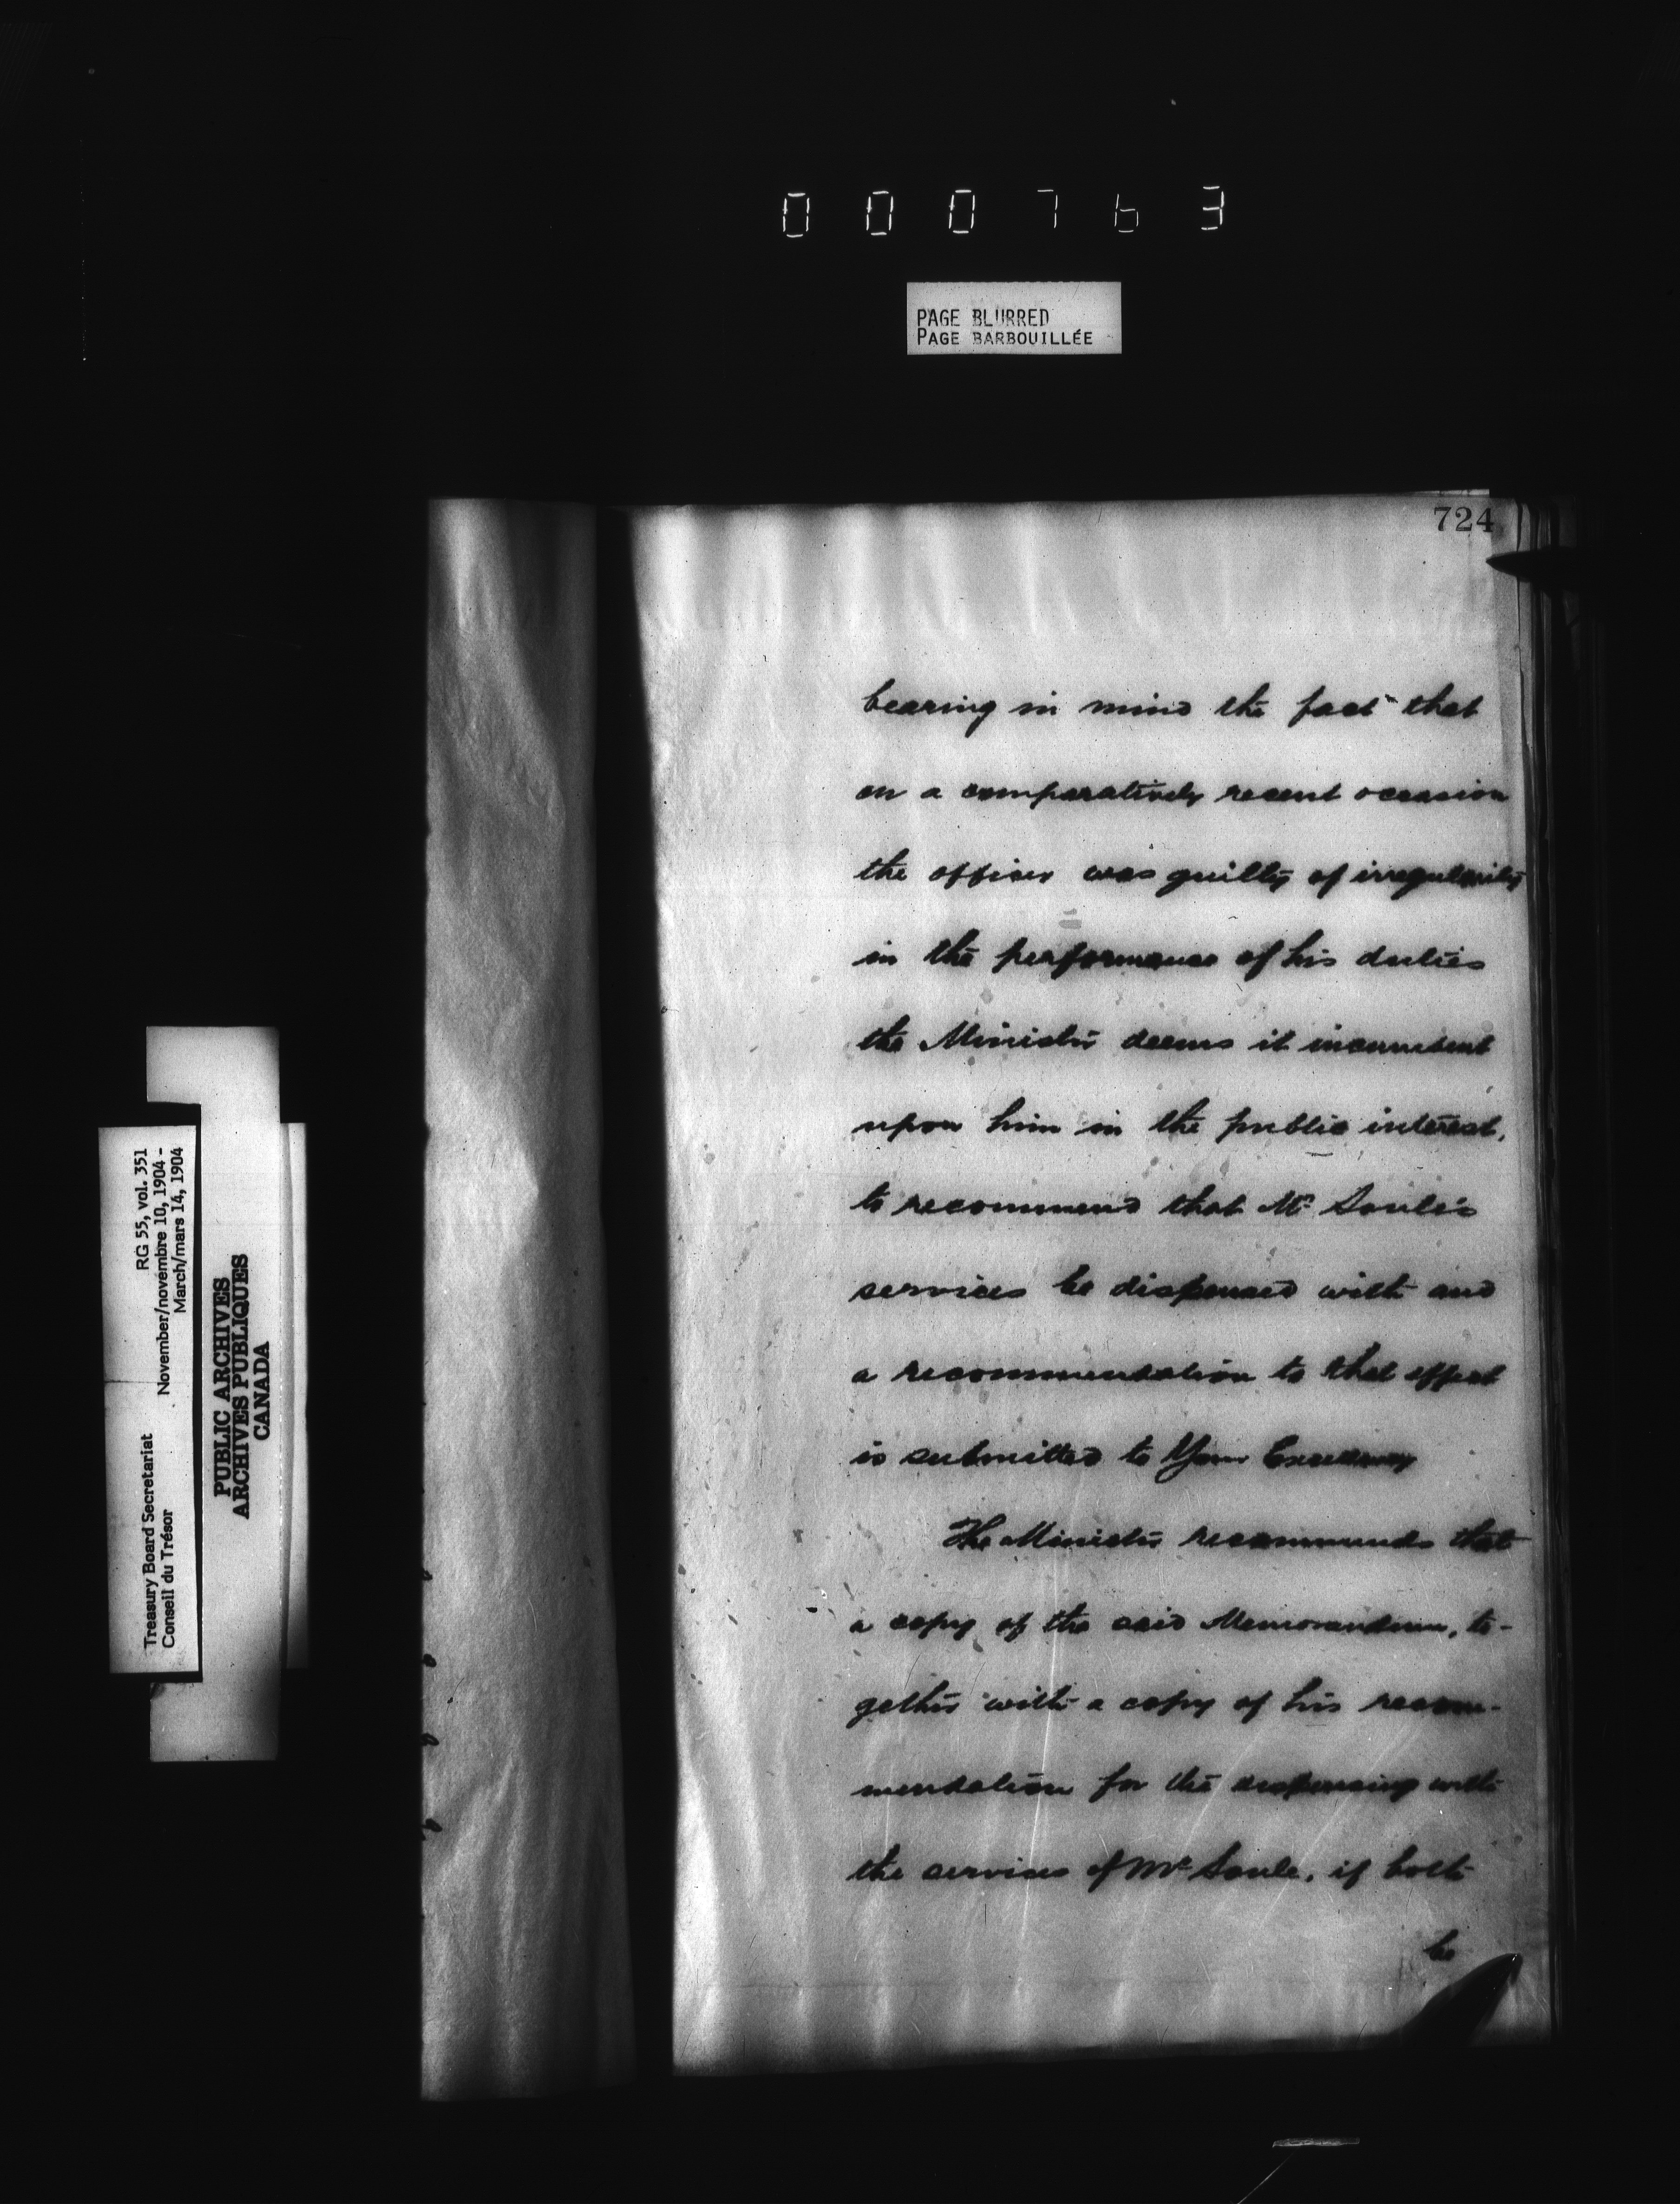 000763
PAGE BLURRED
PAGE BARBOUILLÉE
724
bearing in mind the fact that
on a comparatively recent occasion
the officer was guilty of irregularity
in the performance of his duties
the Minister deems it incumbent
upon him in the public interest,
to recommend that Mr Soule's
services be dispensed with and
a recommendation to that effect
is submitted to Your Excellency
The Minister recommends that
a copy of the said Memorandum, to-
gether with a copy of his recom-
mendation for the dispensing with
the services of Mr Soule, if both
be
Treasury Board Secretariat RG 55, vol. 351
Conseil du Trésor November/novembre 10, 1904 -
March/mars 14, 1904
PUBLIC ARCHIVES
ARCHIVES PUBLIQUES
CANADA